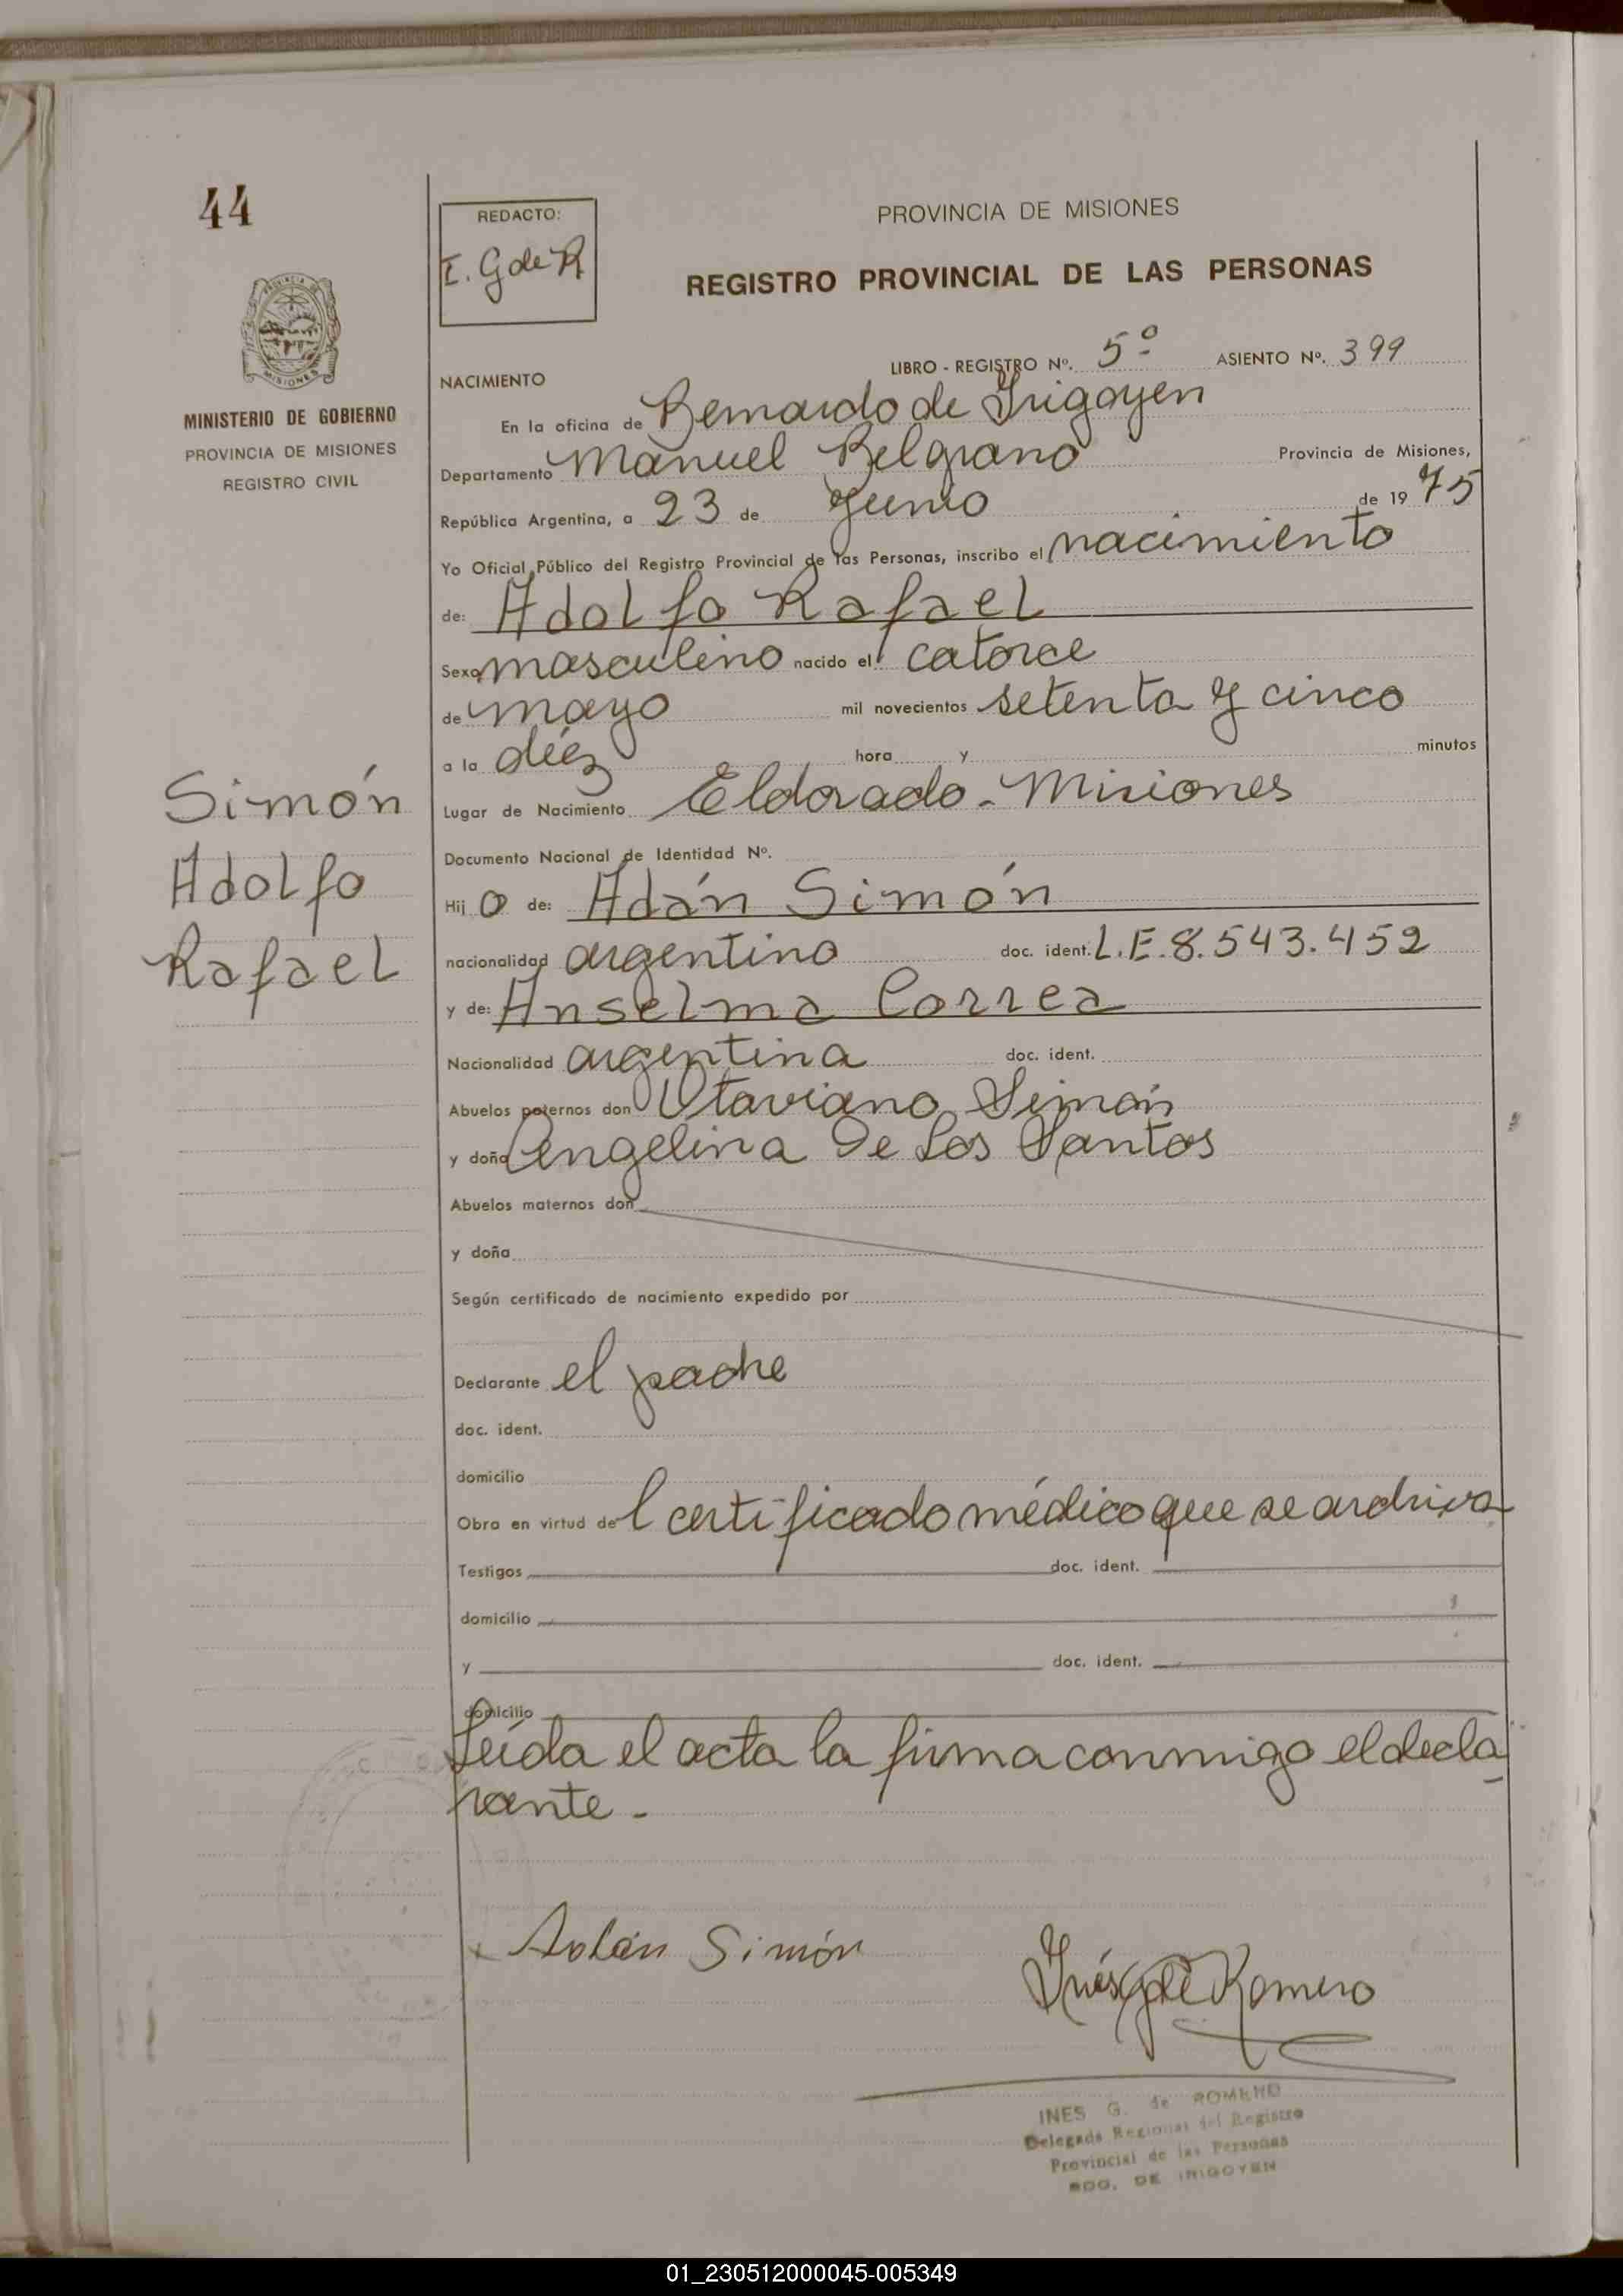 44
MINISTERIO DE GOBIERNO
PROVINCIA DE MISIONES
REGISTRO CIVIL
Simón
Adolfo
Rafael
REDACTO:
I. G de R
PROVINCIA DE MISIONES
REGISTRO PROVINCIAL DE LAS PERSONAS
LIBRO - REGISTRO Nº. 5º ASIENTO Nº. 399
NACIMIENTO
En la oficina de Bernardo de Irigoyen
Departamento Manuel Belgrano Provincia de Misiones,
República Argentina, a 23 de Junio de 19 75
Yo Oficial Público del Registro Provincial de las Personas, inscribo el nacimiento
de: Adolfo Rafael
Sexo masculino nacido el catorce
de mayo mil novecientos setenta y cinco
a la diéz hora y minutos
Lugar de Nacimiento Eldorado - Misiones
Documento Nacional de Identidad Nº.
Hij o de: Adán Simón
nacionalidad argentino doc. ident. L.E. 8.543.452
y de: Anselma Correa
Nacionalidad argentina doc. ident.
Abuelos paternos don Otaviano Simón
y doña Angelina De Los Santos
Abuelos maternos don
y doña
Según certificado de nacimiento expedido por
Declarante el padre
doc. ident.
domicilio
Obra en virtud de l certificado médico que se archiva
Testigos doc. ident.
domicilio
y doc. ident.
domicilio
Leída el acta la firma conmigo el decla
rante -
x Adán Simón
Inés G de Romero
INES G. de ROMERO
Delegada Regional del Registro
Provincial de las Personas
BDO. DE IRIGOYEN
01_230512000045-005349